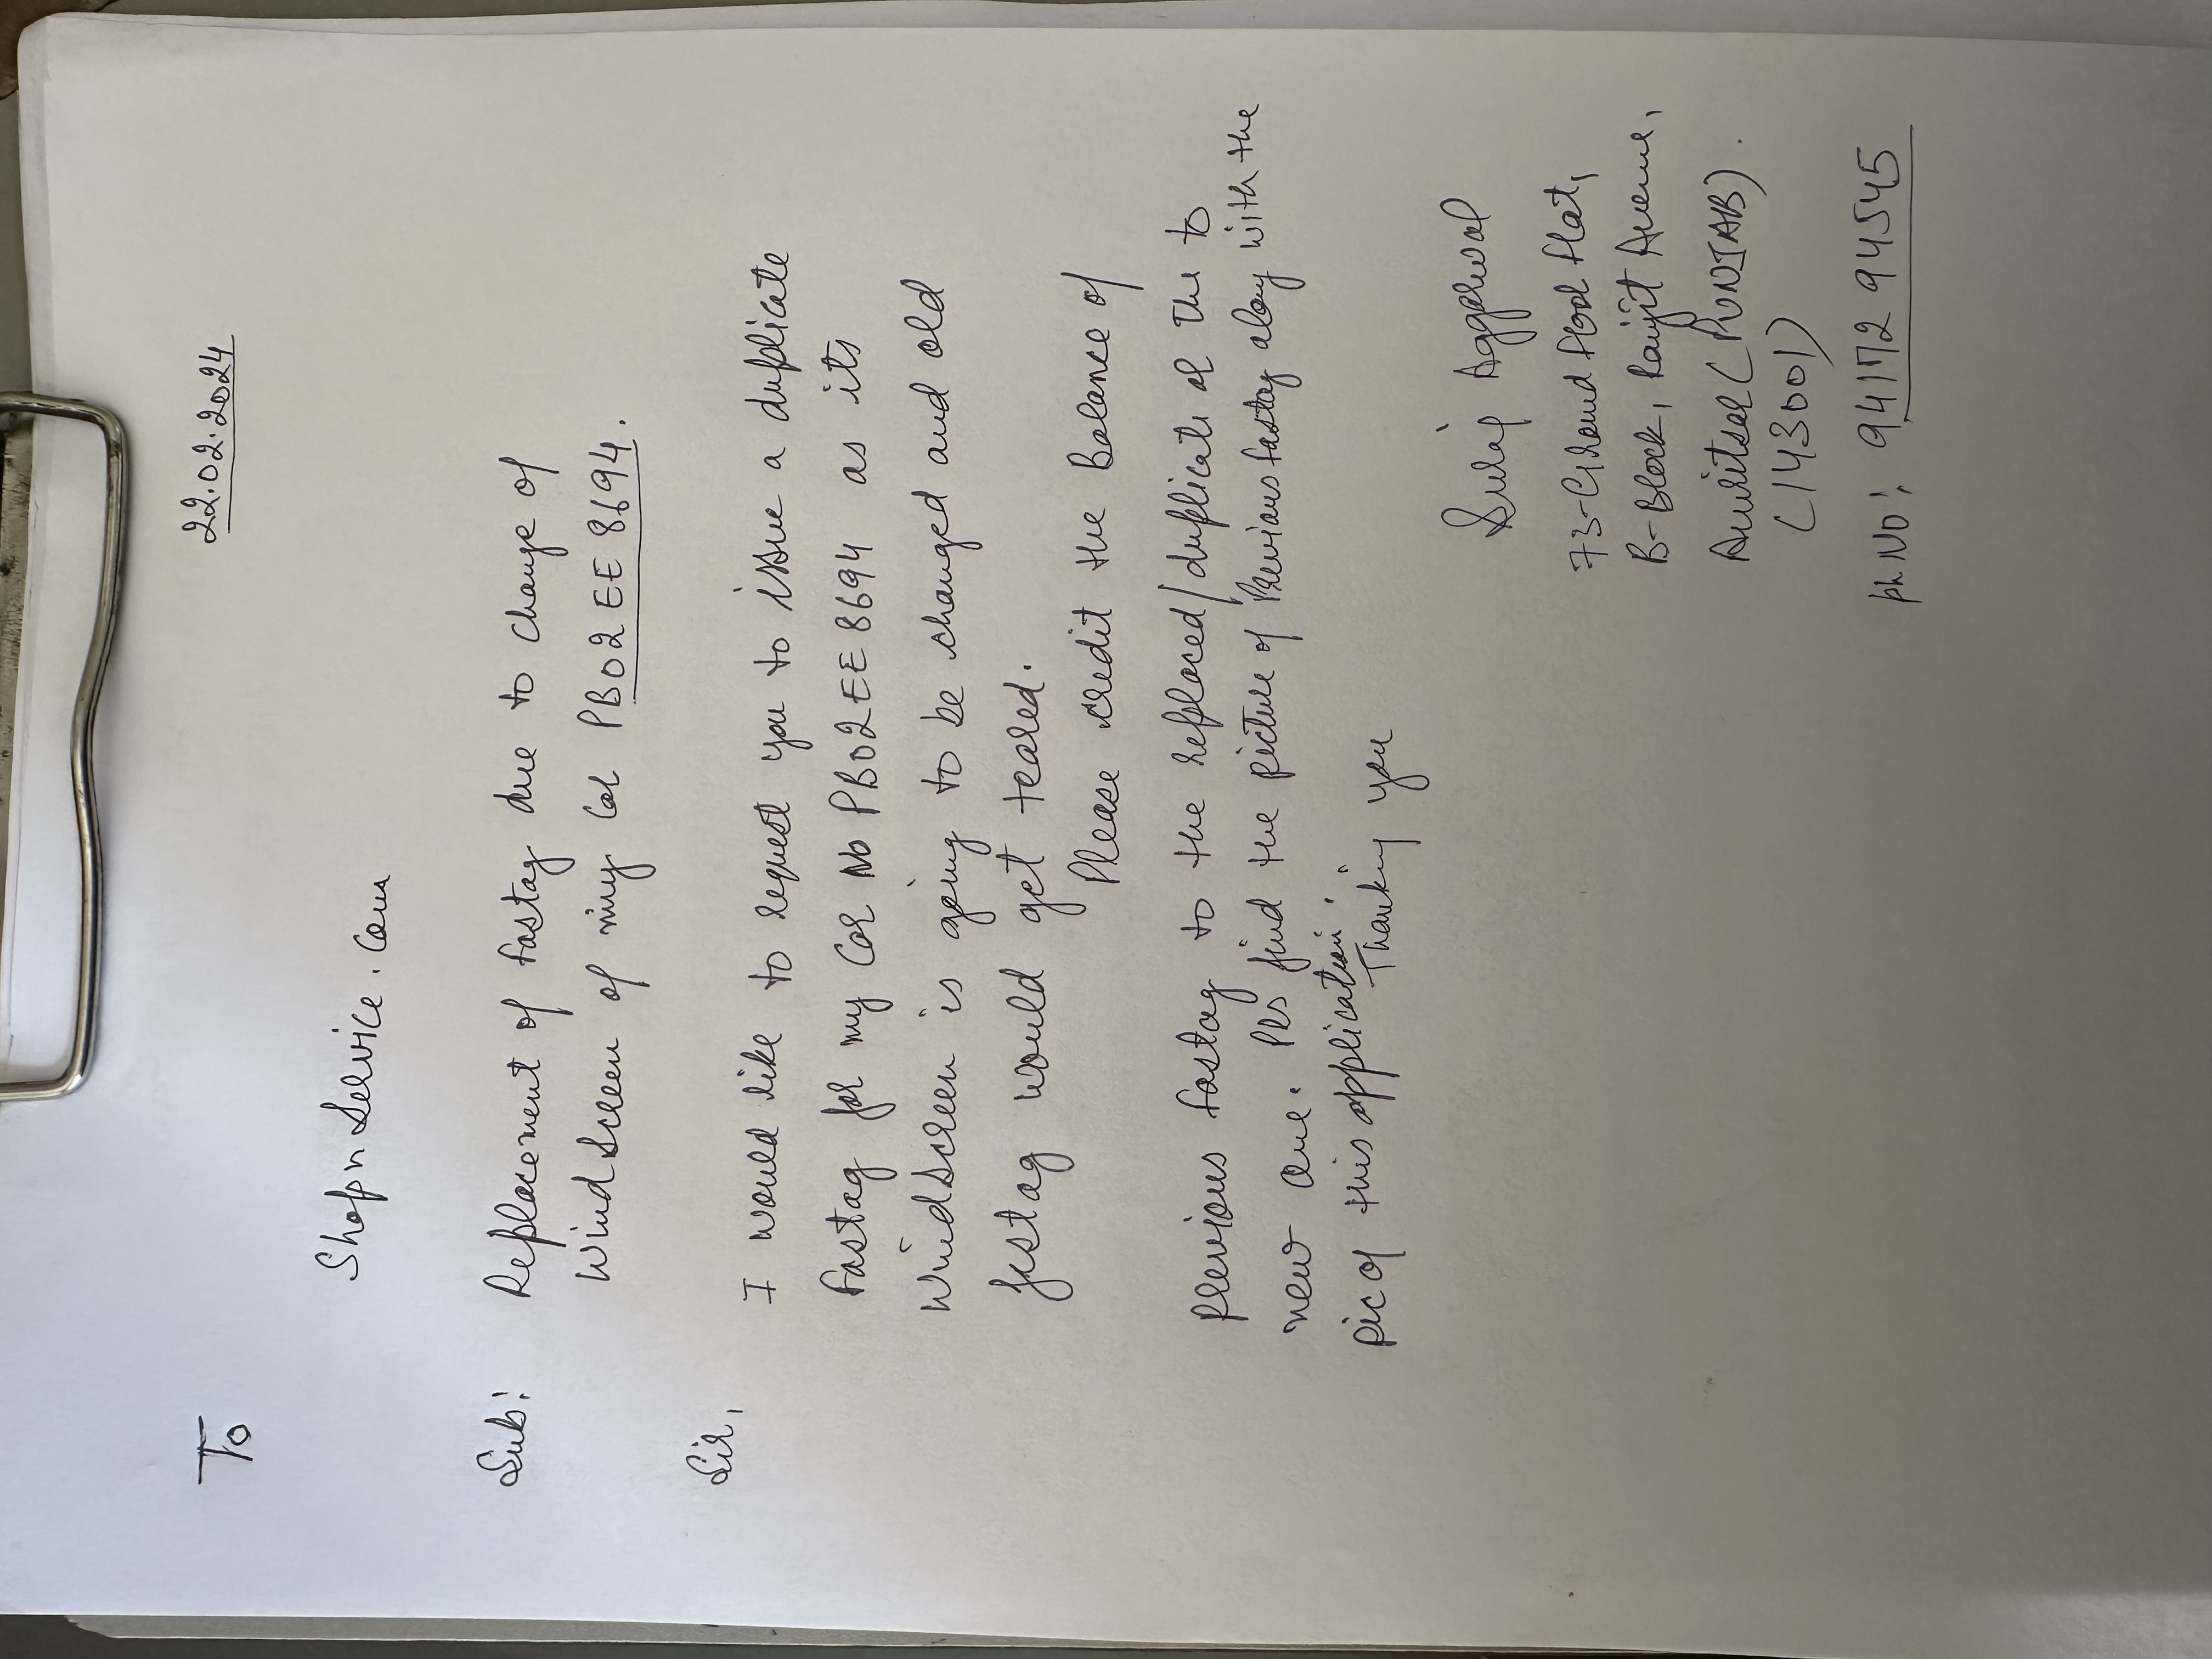 To
22.02.2024
Shop n Service. Com
Sub: Replacement of fastag due to change of
Windscreen of my Car PB02 EE 8694.
Sir,
I would like to request you to issue a duplicate
fastag for my Car No PB02EE8694 as its
Windscreen is going to be changed and old
fastag would get teared.
Please credit the Balance of
previous fastag to the replaced/duplicate of the to
new one. Pls find the picture of Previous fastag along with the
pic of this application.
Thanking you
Aggarwal
73-Ground floor flat,
B-Block, Ranjit Avenue,
Amritsar (PUNJAB).
(143001)
Ph.No: 94172 94545